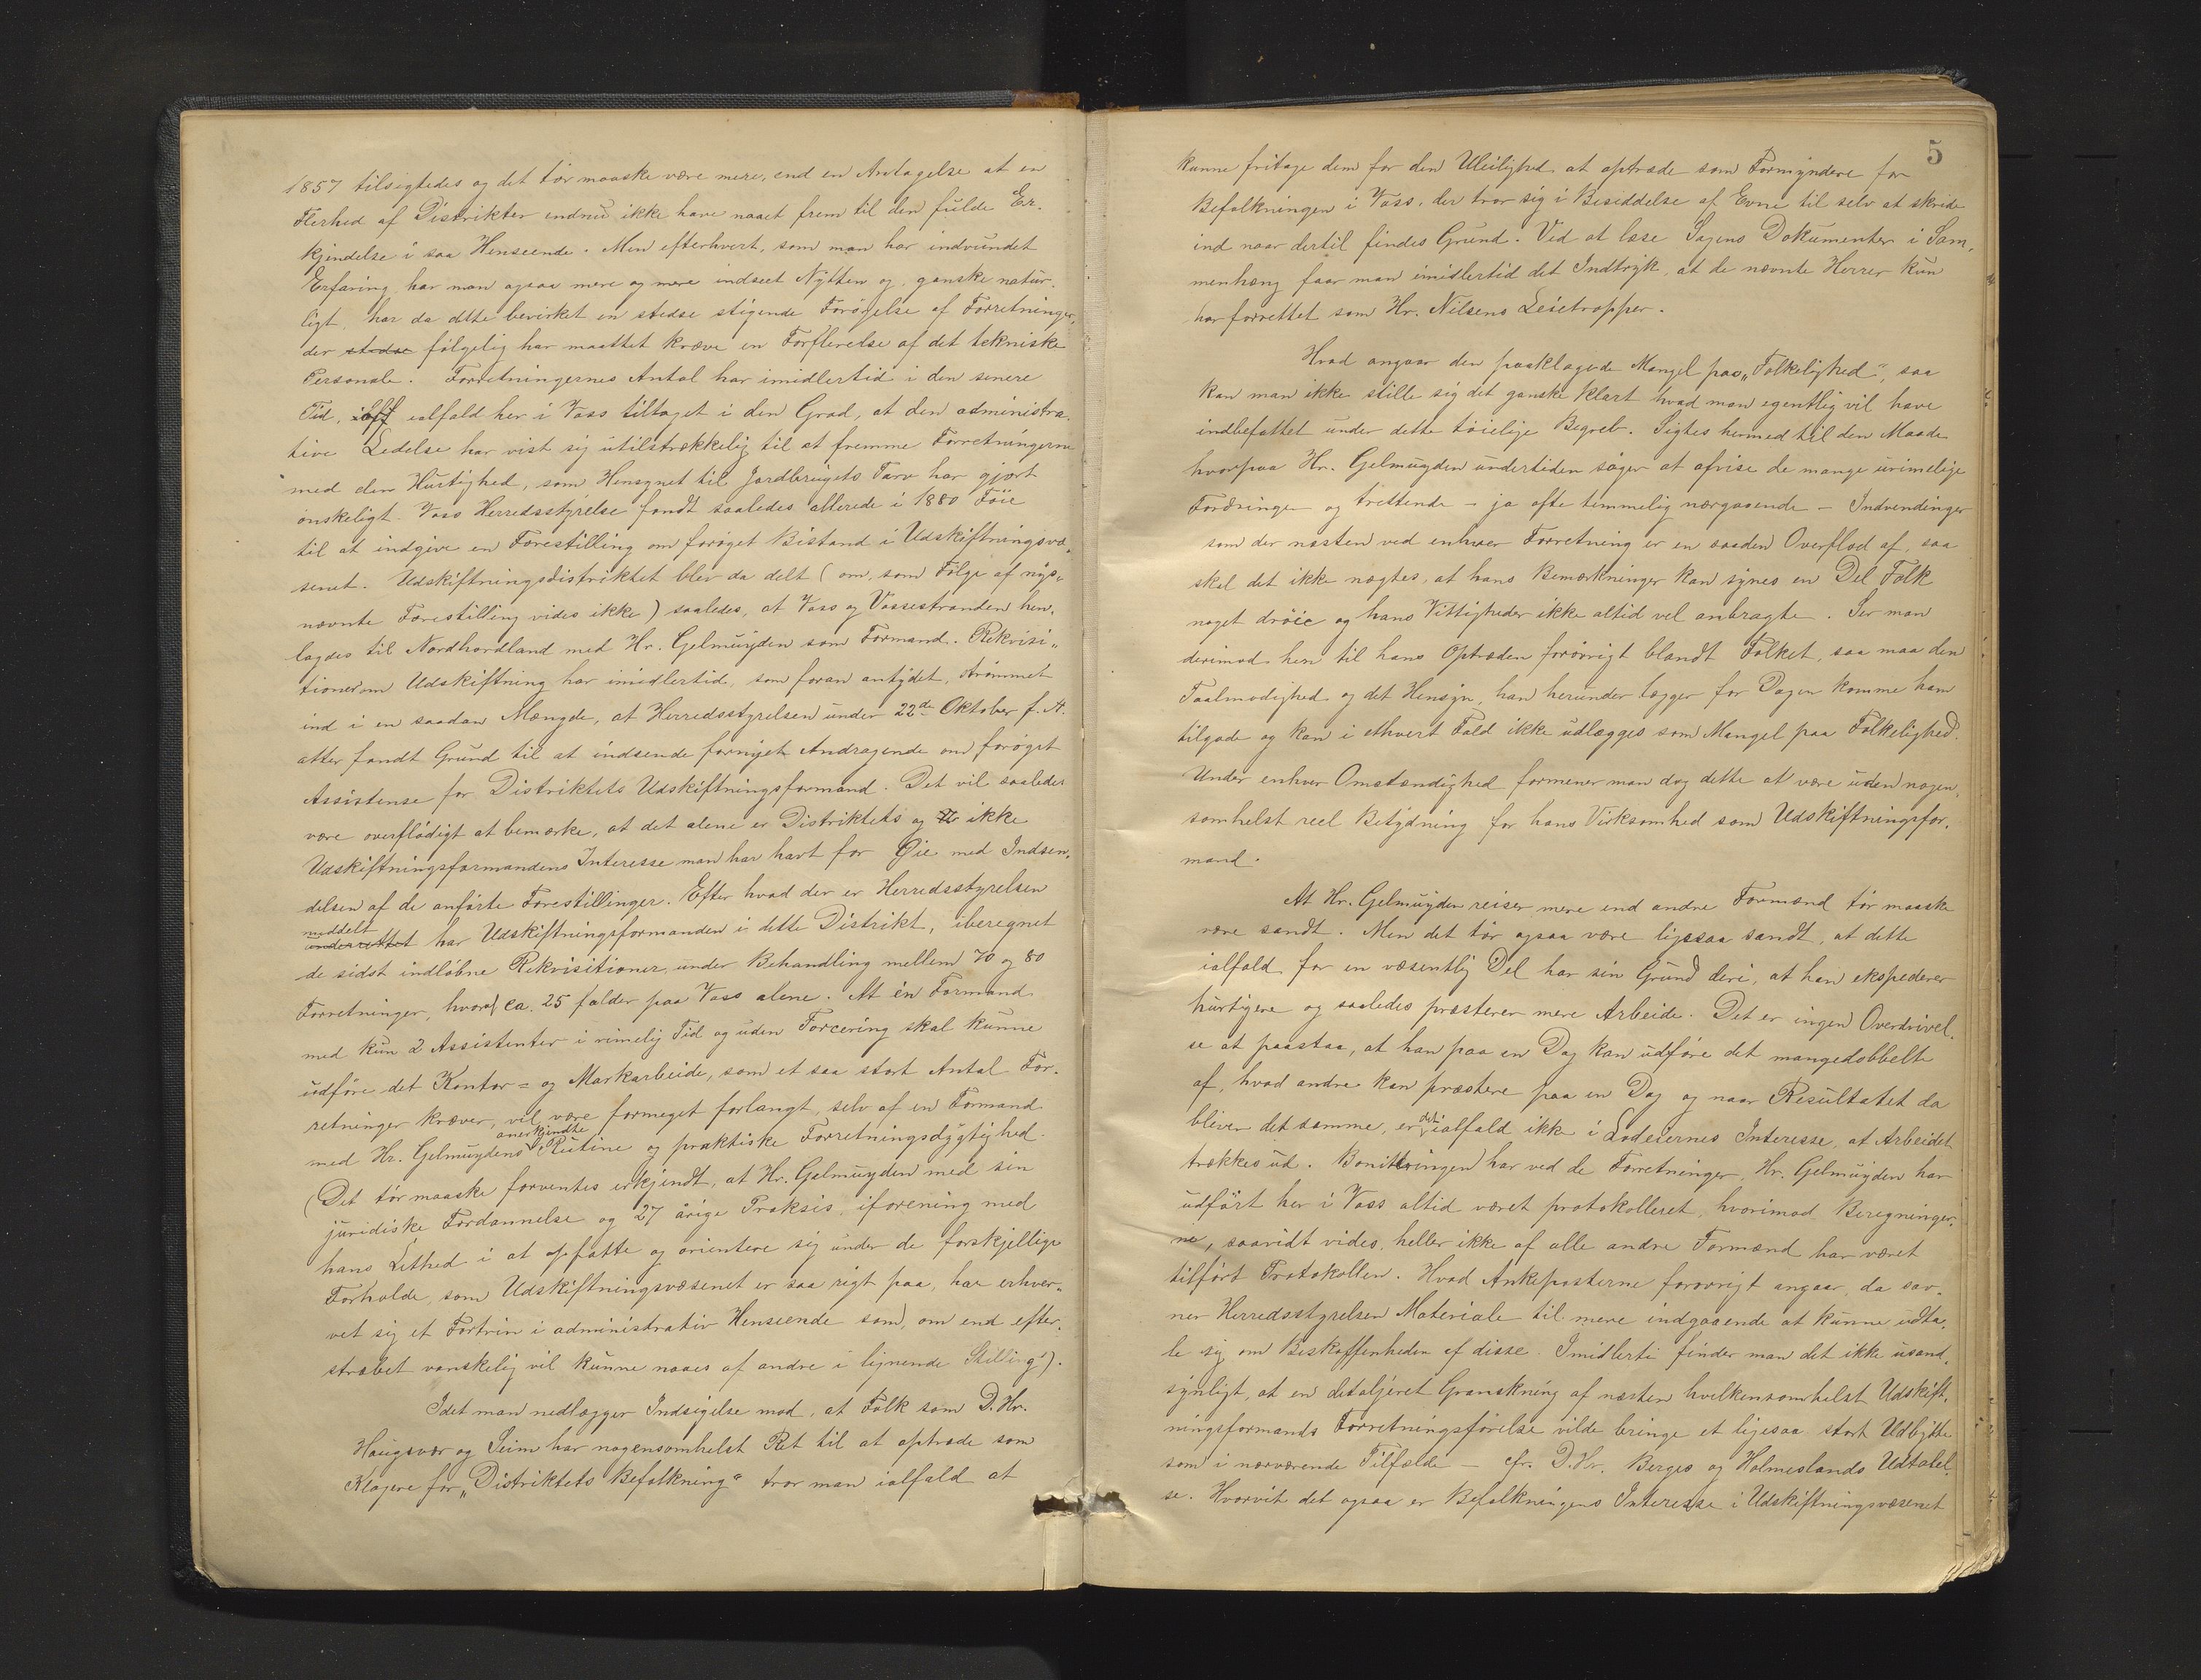 1857 tilsigtedes og det tør maaske være mere, end en Antagelse at en
Flerhed af Distrikter endnu ikke have naaet frem til den fulde Er-
kjendelse i saa Henseende. Men efterhvert, som man har indvundet
Erfaring har man ogsaa mere og mere indseet Nytten og, ganske natur-
ligt, har da dette bevirket en stedse stigende Forøgelse af Forretninger,
der stedse følgelig har maattet kræve en Forflerelse af det tekniske
Personale. Forretningernes Antal har imidlertid i den senere
Tid, ialfald her i Voss tiltaget i den Grad, at den administra-
tive Ledelse har vist sig utilstrækkelig til at fremme Forretningerne
med den Hurtighed, som Hensynet til Jordbrugets Tarv har gjort
ønskeligt. Voss Herredsstyrelse fandt saaledes allerede i 1880 Føie
til at indgive en Forestilling om forøget Bistand i Udskiftningsvæ-
senet. Udskiftningsdistriktet blev da delt (om, som Følge af nys-
nævnte Forestilling vides ikke) saaledes, at Voss og Vossestranden hen-
lagdes til Nordhordland med Hr. Gelmuyden som Formand. Rekvisi-
tioner om Udskiftning har imidlertid, som foran antydet, strømmet
ind i en saadan Mængde, at Herredsstyrelsen under 22de Oktober f. A.
atter fandt Grund til at indsende fornyet Andragende om forøget
Assistense for Distriktets Udskiftningsformand. Det vil saaledes
være overflødigt at bemærke, at det alene er Distriktets og ikke
Udskiftningsformandens Interesse man har havt for Øie med Indsen-
delsen af de anførte Forestillinger. Efter hvad der er Herredsstyrelsen
meddelt
underrettet har Udskiftningsformanden i dette Distrikt, iberegnet
de sidst indløbne Rekvisitioner, under Behandling mellem 70 og 80
Forretninger, hvoraf ca. 25 falder paa Voss alene. At én Formand
med kun 2 Assistenter i rimelig Tid og uden Forcering skal kunne
udføre det Kontor- og Markarbeide, som et saa stort Antal For-
retninger kræver, vil være formeget forlangt, selv af en Formand
anerkjendte
med Hr. Gelmuydens Rutine og praktiske Forretningsdygtighed.
(Det tør maaske forventes erkjendt, at Hr. Gelmuyden med sin
juridiske Fordannelse og 27 årige Praksis, iforening med
hans Lethed i at opfatte og orientere sig under de forskjellige
Forholde, som Udskiftningsvæsenet er saa rigt paa, har erhver-
vet sig et Fortrin i administrativ Henseende som, om end efter-
stræbet vanskelig vil kunne naaes af andre i lignende Stilling).
Idet man nedlægger Indsigelse mod, at Folk som D. Hr.
Haugsvær og Seim har nogensomhelst Ret til at optræde som
Klagere for "Distriktets Befolkning" tror man ialfald at
5
kunne fritage dem for den Uleilighed at optræde som Formyndere for
Befolkningen i Voss, der tror sig i Besiddelse af Evne til selv at skride
ind naar dertil findes Grund. Ved at læse Sagens Dokumenter i Sam-
menhæng faar man imidlertid det Indtryk, at de nævnte Herrer kun
har forrettet som Hr. Nilsens Leietropper.
Hvad angaar den paaklagede Mangel paa "Folkelighed", saa
kan man ikke stille sig det ganske klart hvad man egentlig vil have
indbefattet under dette tøielige Begreb. Sigtes hermed til den Maade
hvorpaa Hr. Gelmuyden undertiden søger at afvise de mange urimelige
Fordringer og trættende – ja ofte temmelig nærgaaende – Indvendinger
som der næsten ved enhver Forretning er en saadan Overflod af, saa
skal det ikke nægtes, at hans Bemærkninger kan synes en Del Folk
noget drøie og hans Vittigheder ikke altid vel anbragte. Ser man
derimod hen til hans Optræden forøvrigt blandt Folket, saa maa den
Taalmodighed og det Hensyn, han herunder lægger for Dagen komme ham
tilgode og kan i ethvert Fald ikke udlægges som Mangel paa Folkelighed.
Under enhver Omstændighed formener man dog dette at være uden nogen-
somhelst reel Betydning for hans Virksomhed som Udskiftningsfor-
mand.
At Hr. Gelmuyden reiser mere end andre Formænd tør maaske
være sandt. Men det tør ogsaa være ligesaa sandt, at dette
ialfald for en væsentlig Del har sin Grund deri, at han ekspederer
hurtigere og saaledes præsterer mere Arbeide. Det er ingen Overdrivel-
se at paastaa, at han paa en Dag kan udføre det mangedobbelte
af, hvad andre kan præstere paa en Dag og naar Resultatet da
bliver det samme, er det ialfald ikke i Lodeiernes Interesse, at Arbeidet
trækkes ud. Boniteringen har ved de Forretninger, Hr. Gelmuyden har
udført her i Voss altid været protokolleret, hvorimod Beregninger-
ne, saavidt vides, heller ikke af alle andre Formænd har været
tilført Protokollen. Hvad Ankeposterne forøvrigt angaar, da sav-
ner Herredsstyrelsen Materiale til mere indgaaende at kunne udta-
le sig om Beskaffenheden af disse. Imidlerti finder man det ikke usand-
synligt, at en detaljeret Granskning af næsten hvilkensomhelst Udskift-
ningsformands Forretningsførelse vilde bringe et ligesaa stort Udbytte
som i nærværende Tilfælde – cfr. D. Hr. Berges og Holmeslands Udtalel-
se. Hvorvit det ogsaa er Befolkningens Interesse i Udskiftningsvæsenet